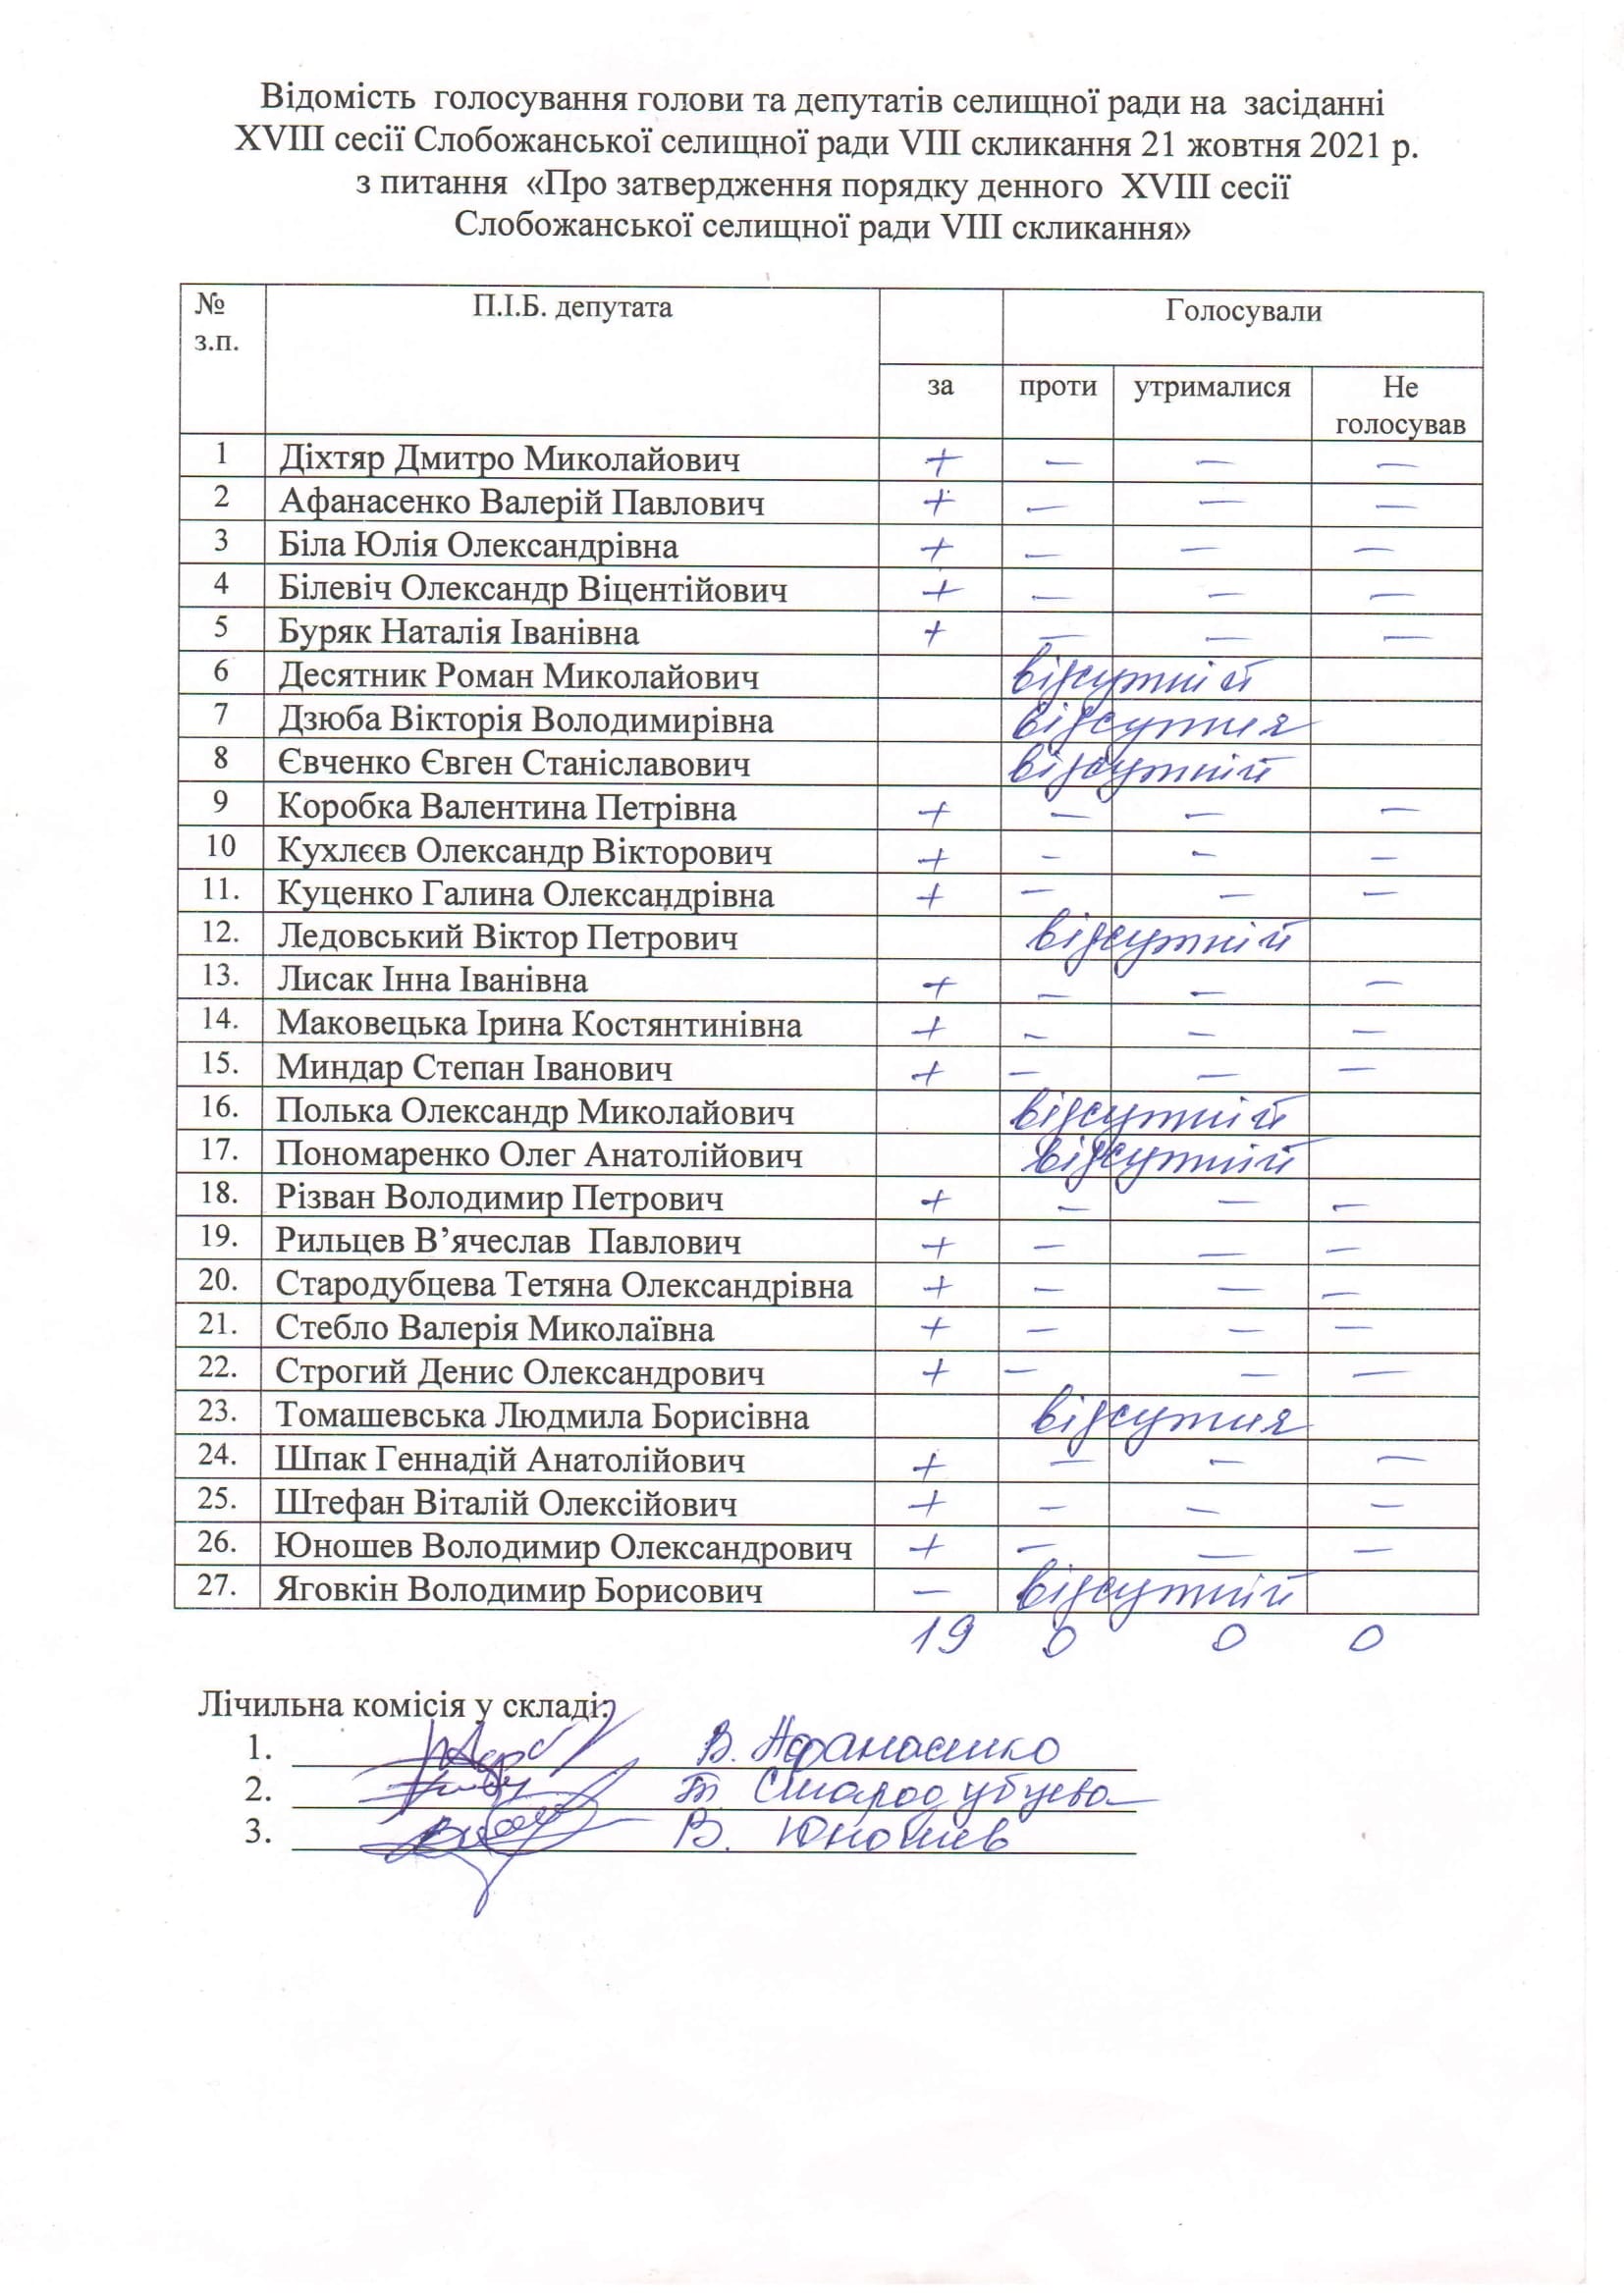 Відомість голосування голови та депутатів селищної ради на засіданні
XVIII сесії Слобожанської селищної ради VIII скликання 21 жовтня 2021 р.
з питання «Про затвердження порядку денного XVIII сесії
Слобожанської селищної ради VIII скликання»
№ П.І.Б. депутата Голосували
з.п.
за проти утрималися Не
голосував
1 Діхтяр Дмитро Миколайович + — — —
2 Афанасенко Валерій Павлович + — — —
3 Біла Юлія Олександрівна + — — —
4 Білевіч Олександр Віцентійович + — — —
5 Буряк Наталія Іванівна + — — —
6 Десятник Роман Миколайович відсутній
7 Дзюба Вікторія Володимирівна відсутня
8 Євченко Євген Станіславович відсутній
9 Коробка Валентина Петрівна + — — —
10 Кухлєєв Олександр Вікторович + — — —
11. Куценко Галина Олександрівна + — — —
12. Ледовський Віктор Петрович відсутній
13. Лисак Інна Іванівна + — — —
14. Маковецька Ірина Костянтинівна + — — —
15. Миндар Степан Іванович + — — —
16. Полька Олександр Миколайович відсутній
17. Пономаренко Олег Анатолійович відсутній
18. Різван Володимир Петрович + — — —
19. Рильцев В’ячеслав Павлович + — — —
20. Стародубцева Тетяна Олександрівна + — — —
21. Стебло Валерія Миколаївна + — — —
22. Строгий Денис Олександрович + — — —
23. Томашевська Людмила Борисівна відсутня
24. Шпак Геннадій Анатолійович + — — —
25. Штефан Віталій Олексійович + — — —
26. Юношев Володимир Олександрович + — — —
27. Яговкін Володимир Борисович — відсутній
19 0 0 0
Лічильна комісія у складі:
1. В. Афанасенко
2. Т. Стародубцева
3. В. Юношев